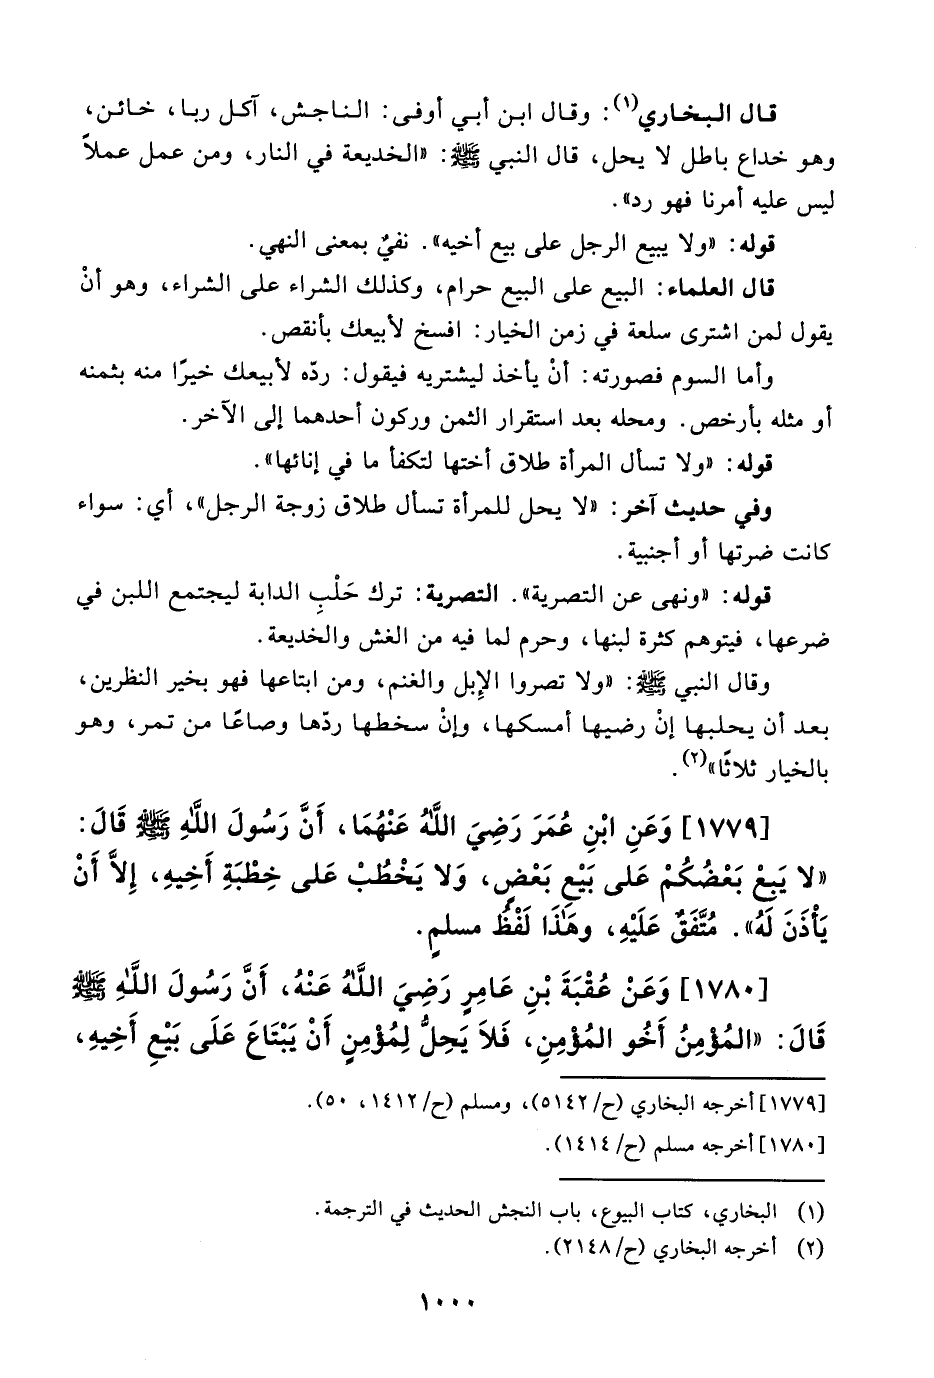 قال البخاري(١): وقال ابن أبي أوفى: الناجش، آكل ربا، خائن،
وهو خداع باطل لا يحل، قال النبي ﷺ: «الخديعة في النار، ومن عمل عملاً
ليس عليه أمرنا فهو رد».
قوله: «ولا يبيع الرجل على بيع أخيه». نفيٌ بمعنى النهي.
قال العلماء: البيع على البيع حرام، وكذلك الشراء على الشراء، وهو أنْ
يقول لمن اشترى سلعة في زمن الخيار: افسخ لأبيعك بأنقص.
وأما السوم فصورته: أنْ يأخذ ليشتريه فيقول: ردّه لأبيعك خيرًا منه بثمنه
أو مثله بأرخص. ومحله بعد استقرار الثمن وركون أحدهما إلى الآخر.
قوله: «ولا تسأل المرأة طلاق أختها لتكفأ ما في إنائها».
وفي حديث آخر: «لا يحل للمرأة تسأل طلاق زوجة الرجل»، أي: سواء
كانت ضرتها أو أجنبية.
قوله: «ونهى عن التصرية». التصرية: ترك حَلْبِ الدابة ليجتمع اللبن في
ضرعها، فيتوهم كثرة لبنها، وحرم لما فيه من الغش والخديعة.
وقال النبي ﷺ: «ولا تصروا الإبل والغنم، ومن ابتاعها فهو بخير النظرين،
بعد أن يحلبها إنْ رضيها أمسكها، وإنْ سخطها ردّها وصاعًا من تمر، وهو
بالخيار ثلاثًا»(٢).
[١٧٧٩] وَعَنِ ابْنِ عُمَرَ رَضِيَ اللَّهُ عَنْهُمَا، أَنَّ رَسُولَ اللَّهِ ﷺ قَالَ:
«لا يَبِعْ بَعْضُكُمْ عَلَى بَيْعِ بَعْضٍ، وَلا يَخْطُبْ عَلى خِطْبَةِ أَخِيهِ، إِلاَّ أَنْ
يَأْذَنَ لَهُ». مُتَّفَقٌ عَلَيْهِ، وهَذَا لَفْظُ مسلمٍ.
[١٧٨٠] وَعَنْ عُقْبَةَ بْنِ عَامِرٍ رَضِيَ اللَّهُ عَنْهُ، أَنَّ رَسُولَ اللَّهِ ﷺ
قَالَ: «المُؤْمِنُ أَخُو المُؤْمِنِ، فَلاَ يَحِلُّ لِمُؤْمِنٍ أَنْ يَبْتَاعَ عَلَى بَيْعِ أَخِيهِ،
[١٧٧٩] أخرجه البخاري (ح/ ٥١٤٢)، ومسلم (ح/ ١٤١٢، ٥٠).
[١٧٨٠] أخرجه مسلم (ح/ ١٤١٤).
(١) البخاري، كتاب البيوع، باب النجش الحديث في الترجمة.
(٢) أخرجه البخاري (ح/ ٢١٤٨).
١٠٠٠